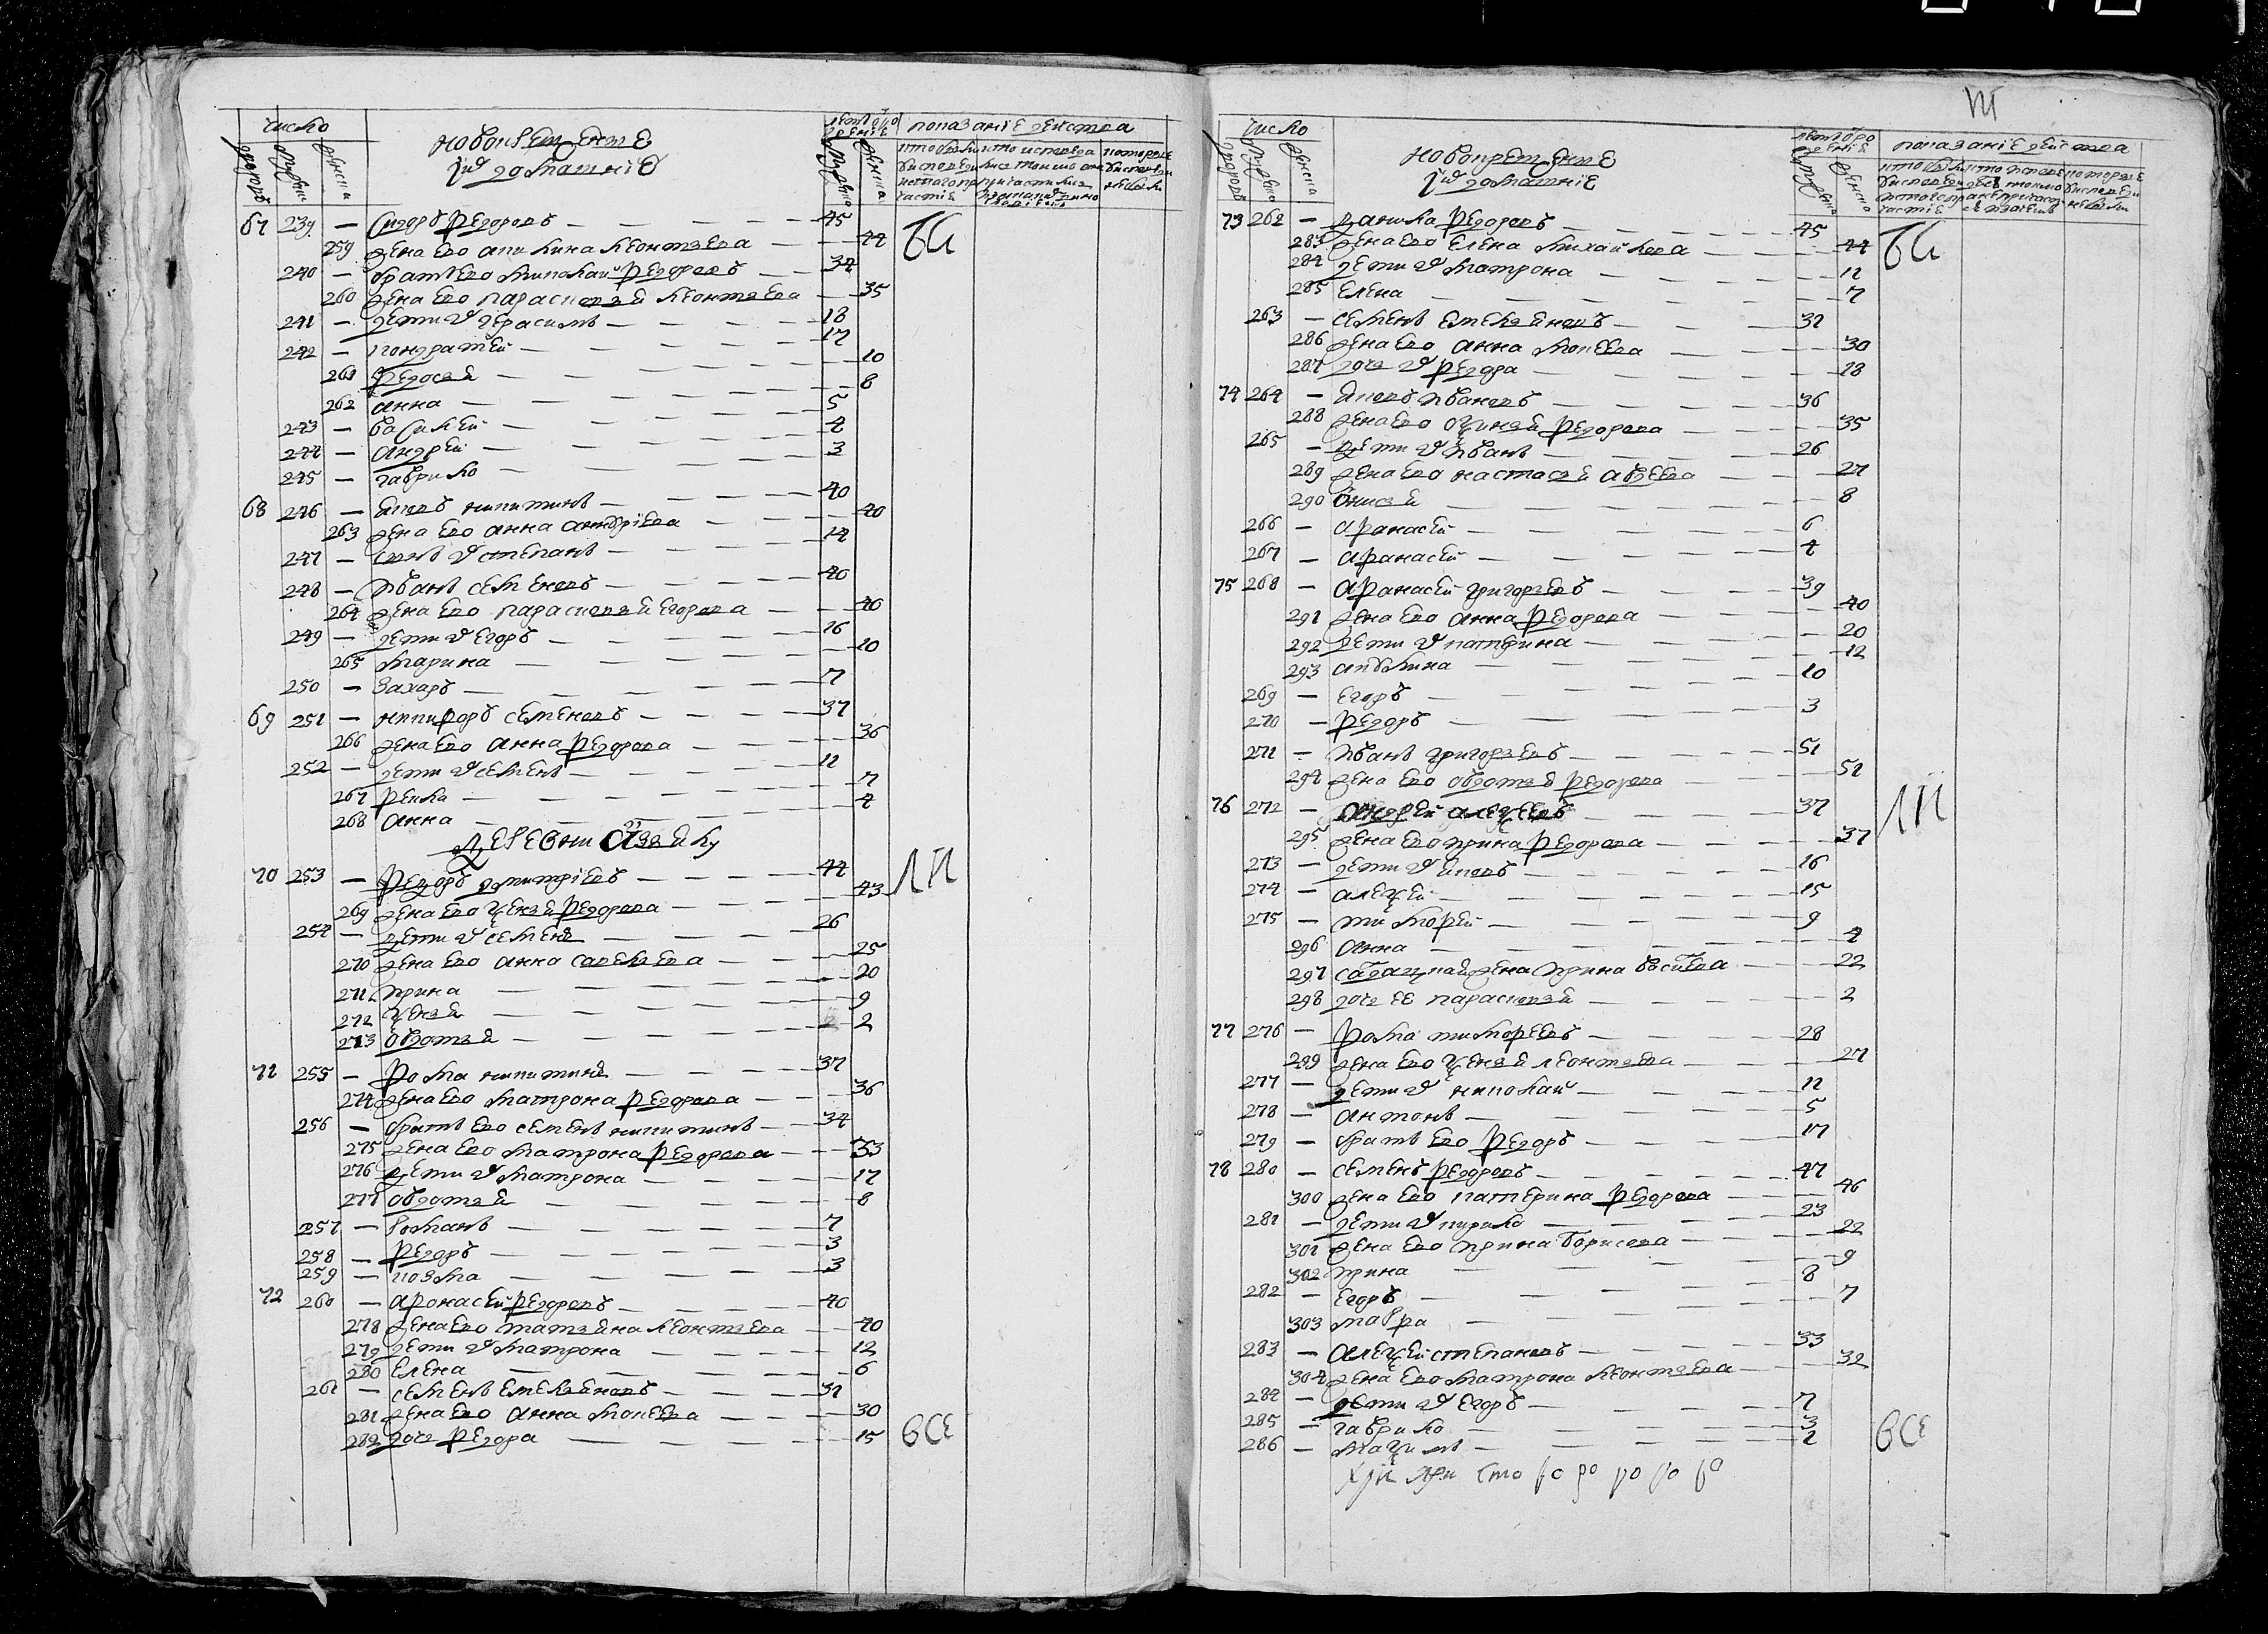 число
новокрещение
и домашние
показание действа
67 239 — Сидоръ Федоровъ — 45
259 жена ево акилина леонтьева — 44
240 — братъ ево николай Федоровъ — 34
260 жена ево парасковья леонтьева — 35
241 — дети их герасимъ — 18
242 — кондратей — 17
261 Федосья — 10
262 анна — 8
243 — василей — 5
244 — андрей — 4
245 — гаврило — 3
68 246 — яковъ никитинъ — 40
263 жена ево анна андриева — 40
247 — сынъ их степанъ — 14
248 — Иванъ семеновъ — 40
264 жена ево парасковья егорова — 40
249 — дети их егоръ — 16
265 марина — 10
250 — захаръ — 7
69 251 — никифоръ семеновъ — 37
266 жена ево анна Федорова — 36
252 — дети их семенъ — 11
267 фекла — 7
268 анна — 4
деревни
70 253 — Федоръ дмитриевъ — 44
269 жена ево ксенья Федорова — 43
254 — дети их семенъ — 26
270 жена ево анна савельева — 25
271 ирина — 20
272 ксенья — 9
273 овдотья — 2
71 255 — фома никитинъ — 37
274 жена ево матрона Федорова — 36
256 — братъ ево семенъ никитинъ — 34
275 жена ево матрона Федорова — 33
276 дети их матрона — 17
277 овдотья — 8
257 — романъ — 7
258 — Федоръ — 3
259 — козма — 3
72 260 — афонасей Федоровъ — 40
278 жена ево татьяна леонтьева — 40
279 дети их матрона — 12
280 елена — 6
261 — семенъ емельяновъ — 31
281 жена ево анна мокеева — 30
282 дочь Федора — 15
все
число
новокрещение
и домашние
показание действа
73 262 — данила Федоровъ — 45
283 жена ево елена михайлова — 44
284 дети их матрона — 12
285 елена — 7
263 — семенъ емельяновъ — 31
286 жена ево анна мокеева — 30
287 дочь их Федора — 18
74 264 — яковъ Ивановъ — 36
288 жена ево оксинья Федорова — 35
265 — дети их Иванъ — 26
289 жена ево настасья авдеева — 27
290 — 8
266 — афанасей — 6
267 — афанасей — 4
75 268 — афанасей григорьевъ — 39
291 жена ево анна Федорова — 40
292 дети их катерина — 20
293 акулина — 12
269 — егоръ — 10
270 — Федоръ — 3
271 — Иванъ григорьевъ — 51
294 жена ево овдотья Федорова — 51
76 272 — андрей алексеевъ — 37
295 жена ево ирина Федорова — 37
273 — дети их яковъ — 16
274 — алексей — 15
275 — тимофей — 9
296 анна — 4
297 салдацкая жена ирина василева — 22
298 дочь ее парасковья — 2
77 276 — фома тимофеевъ — 28
299 жена ево ксенья леонтьева — 27
277 — дети их николай — 11
278 — антонъ — 5
279 — братъ ево Федоръ — 17
78 280 — семенъ Федоровъ — 47
300 жена ево катерина Федорова — 46
281 — дети их кирило — 23
301 жена ево ирина борисова — 22
302 ирина — 9
282 — егоръ — 8
303 мавра — 7
283 — алексей степановъ — 33
304 жена ево матрона леонтьева — 32
284 — дети их егоръ — 7
285 — гаврило — 3
286 — максимъ — 2
все